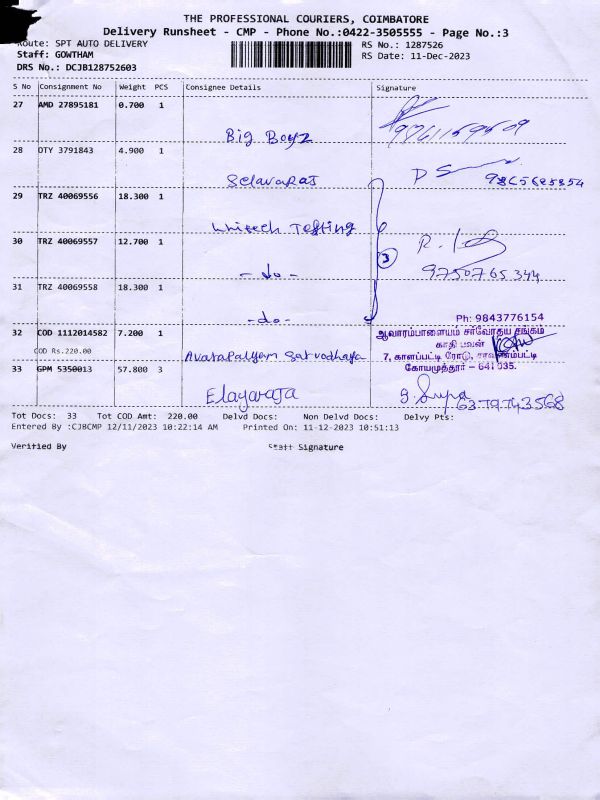 THE PROFESSIONAL COURIERS, COIMBATORE
Delivery Runsheet - CMP - Phone No.:0422-3505555 - Page No.:3
Route: SPT AUTO DELIVERY RS No.: 1287526
Staff: GOWTHAM RS Date: 11-Dec-2023
DRS No.: DCJB128752603
S No Consignment No Weight PCS Consignee Details Signature
27 AMD 27895181 0.700 1
Big Boyz
28 OTY 3791843 4.900 1
Selavaraj
29 TRZ 40069556 18.300 1
Unitech Testing
30 TRZ 40069557 12.700 1
3
-do- 9750765344
31 TRZ 40069558 18.300 1
-do-
Ph: 9843776154
32 COD 1112014582 7.200 1 ஆவாரம்பாளையம் சர்வோதய சங்கம்
COD Rs.220.00 காதி பவன்
Avarapalyam Sarvodhaya 7, காளப்பட்டி ரோடு,
33 GPM 5350013 57.800 3 கோயமுத்தூர் - 641 035.
Elayaraja 6379743568
Tot Docs: 33 Tot COD Amt: 220.00 Delvd Docs: Non Delvd Docs: Delvy Pts:
Entered By :CJBCMP 12/11/2023 10:22:14 AM Printed On: 11-12-2023 10:51:13
Verified By Staff Signature